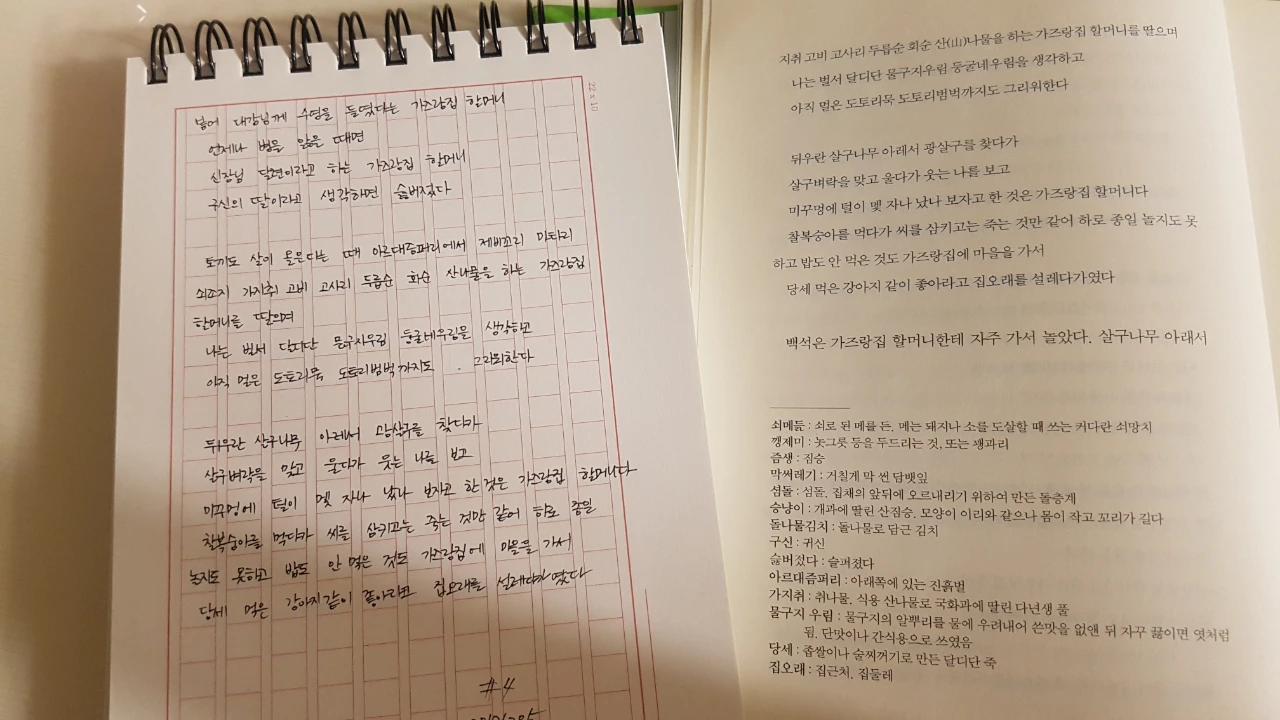 넝에 대감님께 수영을 들였다는 가즈랑집 할머니
언제나 병을 앓을 때면
신장님 달련이라고 하는 가즈랑집 할머니
구신의 딸이라고 생각하면 슳버졌다
토끼도 살이 올은다는 때 아르대즘퍼리에서 제비꼬리 마타리
쇠조지 가지취 고비 고사리 두릅순 회순 산나물을 하는 가즈랑집
할머니를 딸으며
나는 벌서 달디단 물구지우림 둥굴네우림을 생각하고
아직 멀은 도토리묵 도토리범벅까지도 그리워한다
뒤우란 살구나무 아래서 광살구를 찾다가
살구벼락을 맞고 울다가 웃는 나를 보고
미꾸멍에 털이 멫 자나 났나 보자고 한 것은 가즈랑집 할머니다
찰복숭아를 먹다가 씨를 삼키고는 죽는 것만 같어 하로 종일
놀지도 못하고 밥도 안 먹은 것도 가즈랑집에 마을을 가서
당세 먹은 강아지같이 좋아라고 집오래를 설레다가였다
#4
22 x 10
지취 고비 고사리 두릅순 회순 산(山)나물을 하는 가즈랑집 할머니를 딸으며
나는 벌서 달디단 물구지우림 둥굴네우림을 생각하고
아직 멀은 도토리묵 도토리범벅까지도 그리워한다
뒤우란 살구나무 아래서 광살구를 찾다가
살구벼락을 맞고 울다가 웃는 나를 보고
미꾸멍에 털이 멫 자나 났나 보자고 한 것은 가즈랑집 할머니다
찰복숭아를 먹다가 씨를 삼키고는 죽는 것만 같어 하로 종일 놀지도 못
하고 밥도 안 먹은 것도 가즈랑집에 마을을 가서
당세 먹은 강아지 같이 좋아라고 집오래를 설레다가였다
백석은 가즈랑집 할머니한테 자주 가서 놀았다. 살구나무 아래서
쇠메듣 : 쇠로 된 메를 든, 메는 돼지나 소를 도살할 때 쓰는 커다란 쇠망치
깽제미 : 놋그릇 등을 두드리는 것, 또는 꽹과리
즘생 : 짐승
막써레기 : 거칠게 막 썬 담뱃잎
섬돌 : 섬돌, 집채의 앞뒤에 오르내리기 위하여 만든 돌층계
승냥이 : 개과에 딸린 산짐승, 모양이 이리와 같으나 몸이 작고 꼬리가 길다
돌나물김치 : 돌나물로 담근 김치
구신 : 귀신
슳버졌다 : 슬퍼졌다
아르대즘퍼리 : 아래쪽에 있는 진흙벌
가지취 : 취나물, 식용 산나물로 국화과에 딸린 다년생 풀
물구지 우림 : 물구지의 알뿌리를 물에 우려내어 쓴맛을 없앤 뒤 자꾸 끓이면 엿처럼
됨. 단맛이나 간식용으로 쓰였음
당세 : 좁쌀이나 술찌꺼기로 만든 달디단 죽
집오래 : 집근처, 집둘레